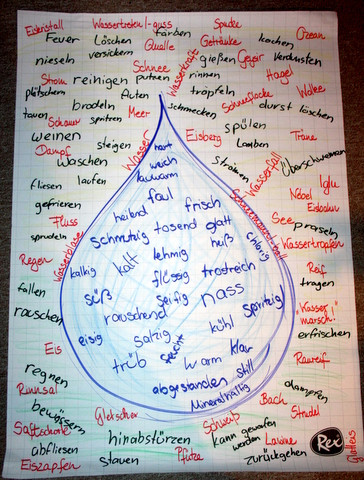 Eiskristall Wassertreten/-guss Spucke Ozean
Feuer Löschen färben Getränke kochen
nieseln versickern Qualle gießen Geysir verdunsten
Schnee Wasserkraft rinnen Hagel
Strom reinigen putzen tröpfeln Schneeflocke Wolke
plätschern brodeln fluten schmecken durst löschen
tauen Schauer spritzen Meer spülen
weinen steigen Wasser Eisberg Träne
Dampf waschen hart weich lauwarm Wasserfall überschwemmen
fließen laufen faul strömen Iglu
gefrieren heilend frisch Nebel Eisbahn
Fluss schmutzig tosend glatt See prasseln
sprudeln Wasserblase kalt lehmig heiß chlorig Wassertropfen
Regen kalkig flüssig trostreich Reif
fallen süß seifig nass tragen
rauschen rauschend spritzig "Wasser marsch!"
eisig salzig kühl erfrischen
Eis trüb feucht warm klar Raureif
regnen abgestanden still dampfen
Rinnsal Mineralhaltig Bach
bewässern Gletscher Schweiß Strudel
Saftschorle hinabstürzen kann geworfen werden Lawine Rex
abfließen Pfütze zurückgehen
Eiszapfen stauen